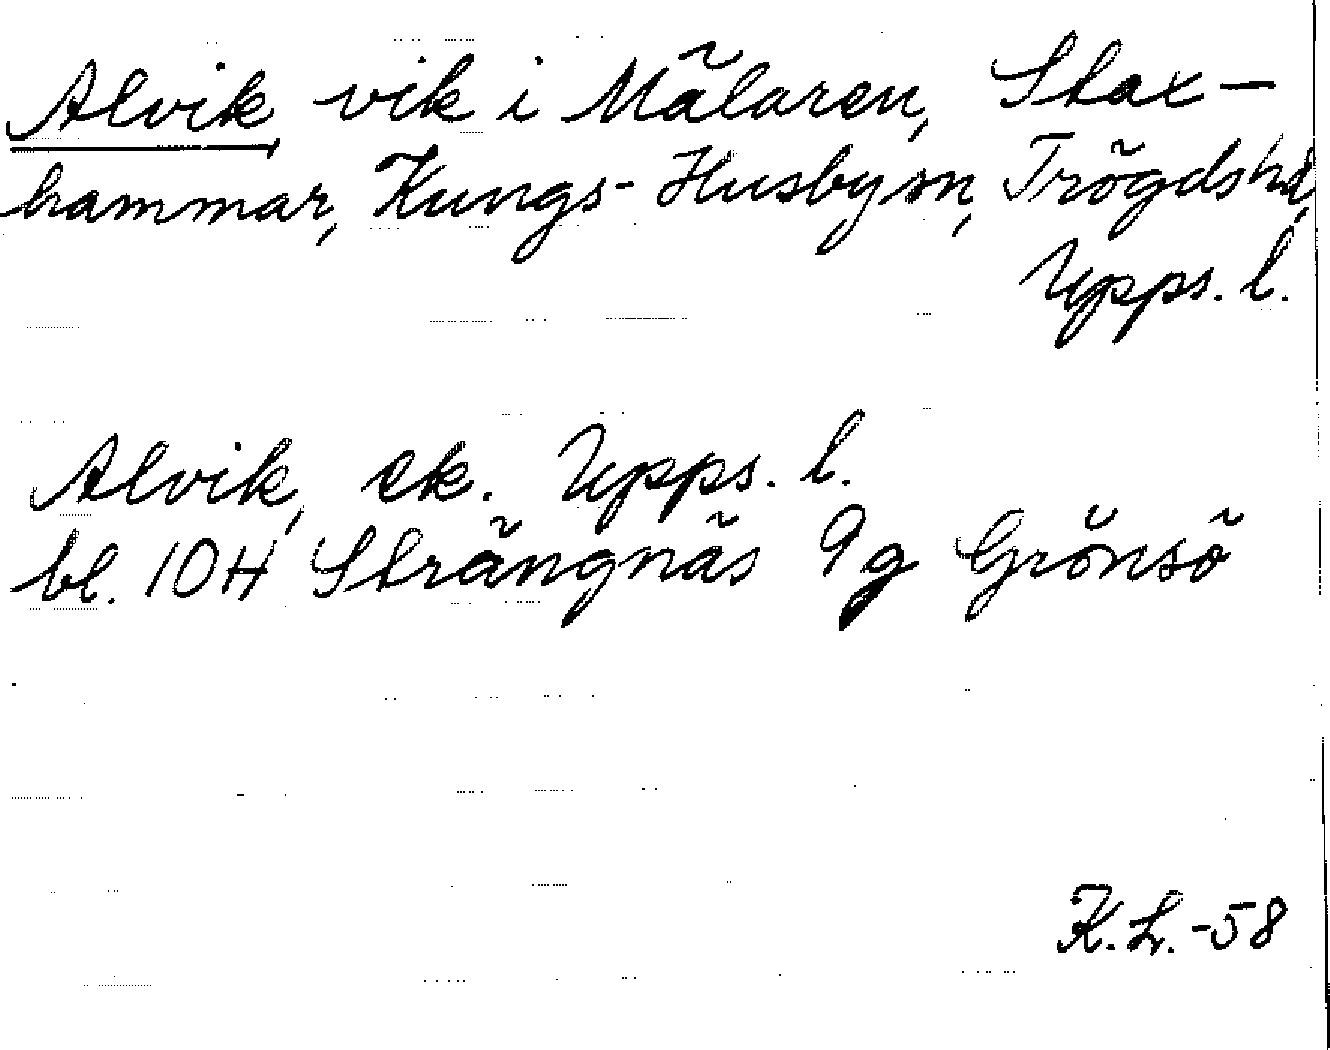 Alvik, vik i Mälaren, Stax-
hammar, Kungs-Husby sn, Trögds hd,
Upps. l.
Alvik, ek. Upps. l.
bl. 10H Strängnäs 9g Grönsö
K.L. -58